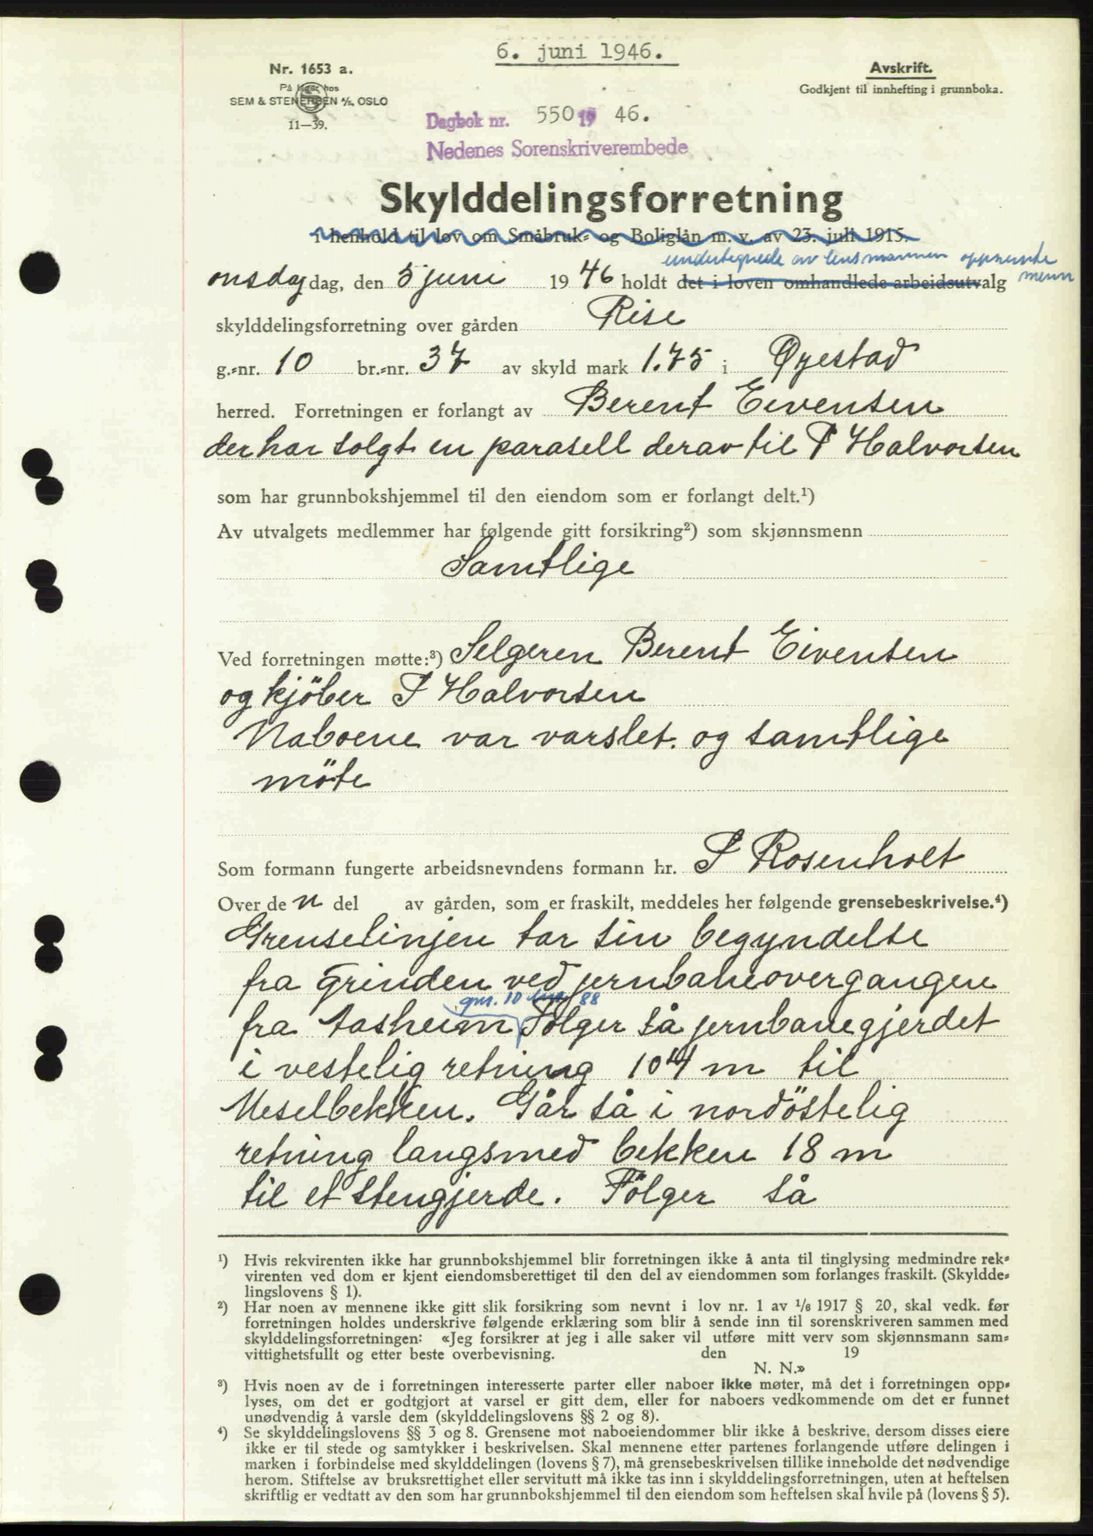 6. juni 1946.
Nr. 1653 a.
På lager hos
SEM & STENERSEN A/S, OSLO
11—39.
Avskrift.
Godkjent til innhefting i grunnboka.
Dagbok nr. 550 19 46.
Nedenes Sorenskriverembede
Skylddelingsforretning
i henhold til lov om Småbruk- og Boliglån m. v. av 23. juli 1915.
undertegnede av lensmannen oppnevnte
onsdag dag, den 5 juni 1946 holdt det i loven omhandlede arbeidsutvalg menn
skylddelingsforretning over gården Rise
g.-nr. 10 br.-nr. 37 av skyld mark 1.75 i Øyestad
herred. Forretningen er forlangt av Berent Eivensen
der har solgt en parasell derav til T Halvorsen
som har grunnbokshjemmel til den eiendom som er forlangt delt.¹)
Av utvalgets medlemmer har følgende gitt forsikring²) som skjønnsmenn
Samtlige
Ved forretningen møtte:³) Selgeren Berent Eivensen
og kjöber T Halvorsen
Naboene var varslet. og samtlige
möte
Som formann fungerte arbeidsnevndens formann hr. Rosenholt
Over de n del av gården, som er fraskilt, meddeles her følgende grensebeskrivelse.⁴)
Grenselinjen tar sin begyndelse
fra Grinden ved jernbaneovergangen
gnr. 10 88
fra Aasheim Fölger så jernbanegjerdet
i vestelig retning 104 m til
Meselbekken. Går så i nordöstelig
retning langsmed bekken 18 m
til et stengjerde. Fölger så
¹) Hvis rekvirenten ikke har grunnbokshjemmel blir forretningen ikke å anta til tinglysing medmindre rek-
virenten ved dom er kjent eiendomsberettiget til den del av eiendommen som forlanges fraskilt. (Skyldde-
lingslovens § 1).
²) Har noen av mennene ikke gitt slik forsikring som nevnt i lov nr. 1 av 1/6 1917 § 20, skal vedk. før
forretningen holdes underskrive følgende erklæring som blir å sende inn til sorenskriveren sammen med
skylddelingsforretningen: «Jeg forsikrer at jeg i alle saker vil utføre mitt verv som skjønnsmann sam-
vittighetsfullt og etter beste overbevisning. den 19
N. N.»
³) Hvis noen av de i forretningen interesserte parter eller naboer ikke møter, må det i forretningen opp-
lyses, om det er godtgjort at varsel er gitt dem, eller for naboers vedkommende om det er funnet
unødvendig å varsle dem (skylddelingslovens §§ 2 og 8).
⁴) Se skylddelingslovens §§ 3 og 8. Grensene mot naboeiendommer blir ikke å beskrive, dersom disses eiere
ikke er til stede og samtykker i beskrivelsen. Skal mennene etter partenes forlangende utføre delingen i
marken i forbindelse med skylddelingen (lovens § 7), må grensebeskrivelsen tillike inneholde det nødvendige
herom. Stiftelse av bruksrettighet eller servitutt må ikke tas inn i skylddelingsforretningen, uten at heftelsen
skriftlig er vedtatt av den som har grunnbokshjemmel til den eiendom som heftelsen skal hvile på (lovens § 5).